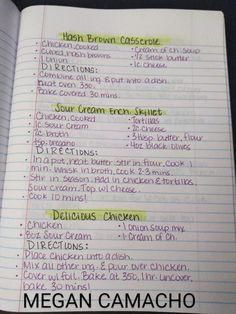 Hash Brown Casserole
• Chicken, cooked • Cream of ch. soup
• cubed hash browns • 1/2 stick butter
• 1 onion • 1c cheese
DIRECTIONS:
• Combine all ing. & put into a dish.
• Heat oven 350.
• Bake covered 30 mins.
Sour Cream Ench. Skillet
• Chicken, cooked • Tortillas
• 1c sour cream • 2c cheese
• 2c broth • 3 tbsp. butter, flour
• 1tsp. oregano • 4oz. black olives
DIRECTIONS:
• In a put, heat butter. Stir in flour. Cook 1
min. Whisk in broth, cook 2-3 mins.
• Stir in season. Add in chicken & tortillas,
sour cream. Top w/ cheese.
• Cook 10 mins!
Delicious Chicken
• Chicken • 1 Onion soup mix
• 8oz Sour Cream • 1 Cream of Ch.
DIRECTIONS:
• Place chicken into a dish.
• Mix all other ing. & pour over chicken.
• Cover w/ foil. Bake at 350, 1 hr. Uncover,
bake 30 mins!
MEGAN CAMACHO